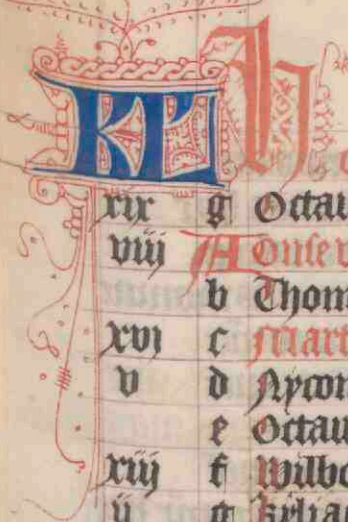 KL
xix g Octau
viij A Conser
b Thom
xvi c Mart
v d Nycom
e Octau
xiij f Wilbo
ij g Kilia